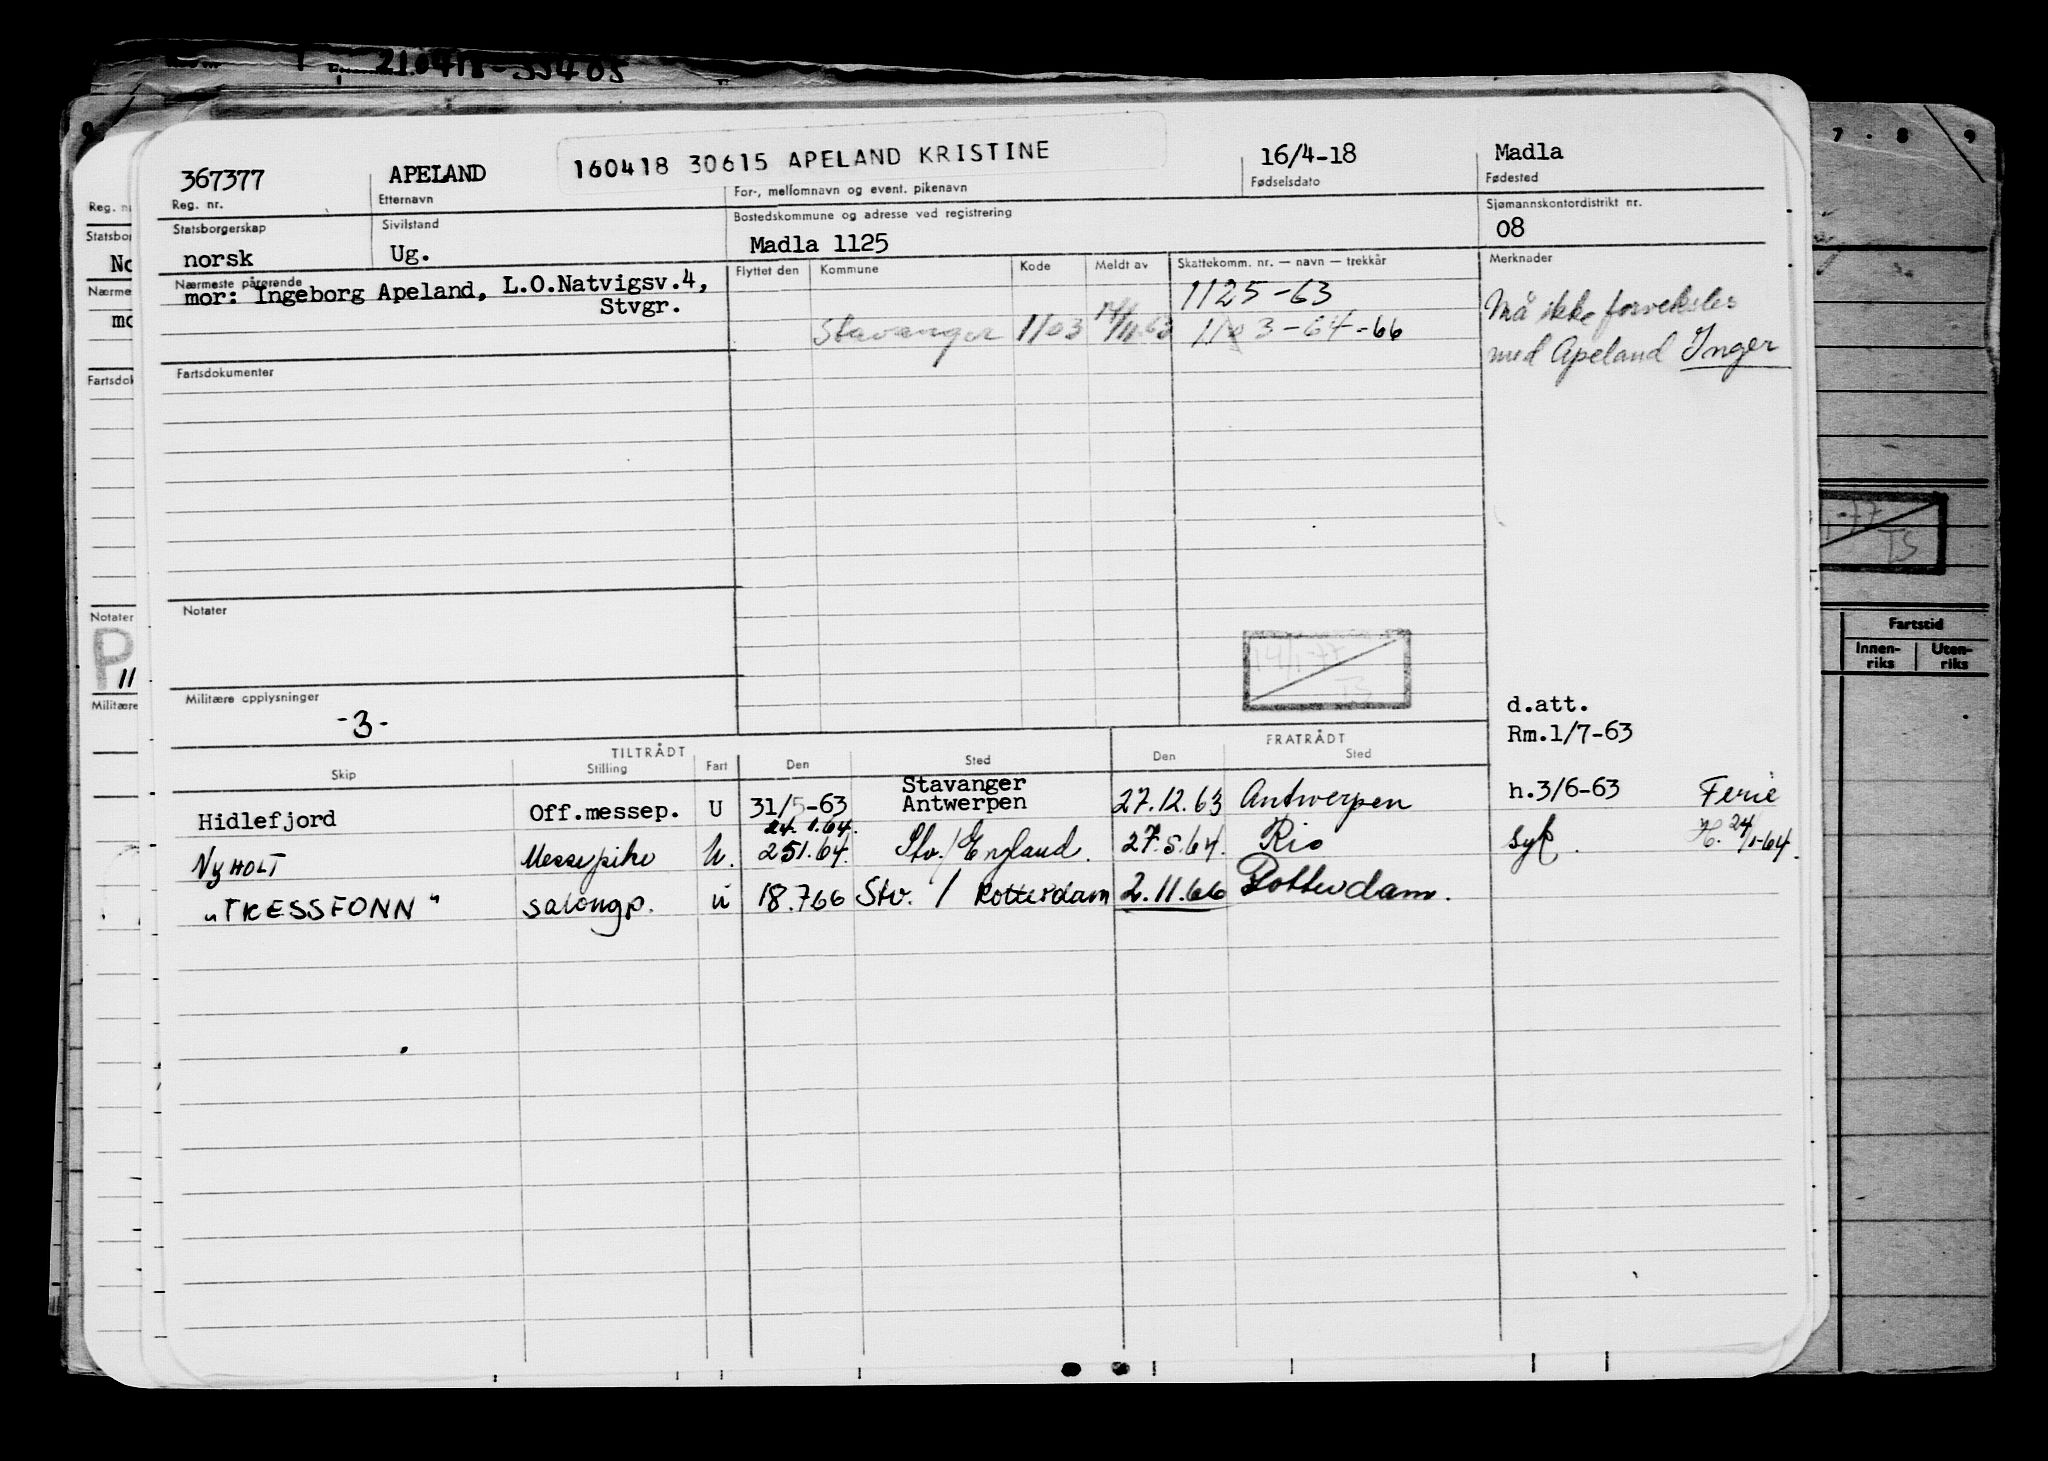 210418-33405
7 . 8 9
367377 APELAND 160418 30615 APELAND KRISTINE 16/4-18 Madla
Reg. nr. Etternavn For-, mellomnavn og event. pikenavn Fødselsdato Fødested
Statsborgerskap Sivilstand Bostedskommune og adresse ved registrering Sjømannskontordistrikt nr.
norsk Ug. Madla 1125 08
Nærmeste pårørende Flyttet den Kommune Kode Meldt av Skattekomm. nr. — navn — trekkår Merknader
mor: Ingeborg Apeland, L.O.Natvigsv.4, 1125-63 Må ikke forveksles
Stvgr.
Stavanger 1103 1103-64-66 med Apeland Inger
Fartsdokumenter
Notater
Militære opplysninger
-3-
d.att.
Rm.1/7-63
TILTRÅDT FRATRÅDT
Skip Stilling Fart Den Sted Den Sted
Stavanger
Hidlefjord Off.messep. U 31/5-63 Antwerpen 27.12.63 Antwerpen h.3/6-63 Ferie
24.1.64.
NyHOLT Messepike U. 251.64. Stv./England. 27.5.64. Rio syk. H. 24/1-64.
"TRESSFONN" salongp. u 18.766 Stv. / Rotterdam 2.11.66 Rotterdam.
Reg. n
Statsbor
No
Nærme
mo
Fartsdok
Notater
P
11
Militære
-77
TS
Fartstid
Innen-
riks
Uten-
riks